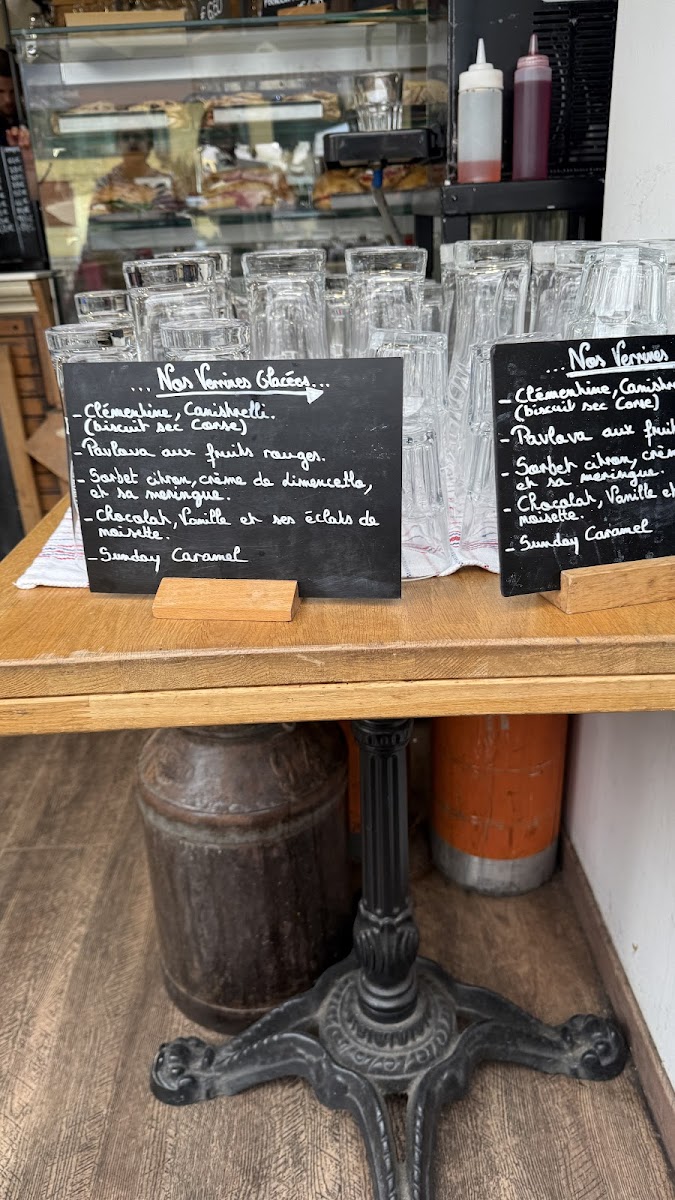 ... Nos Verrines Glacées...
- Clémentine, Canistrelli.
(biscuit sec Corse)
- Pavlova aux fruits rouges.
- Sorbet citron, crème de limencello,
et sa meringue.
- Chocolat, Vanille et ses éclats de
noisette.
- Sunday Caramel
... Nos Verrines
- Clémentine, Canistre
(biscuit sec Corse)
- Pavlova aux fruit
- Sorbet citron, crèm
et sa meringue.
- Chocolat, Vanille et
noisette.
- Sunday Caramel